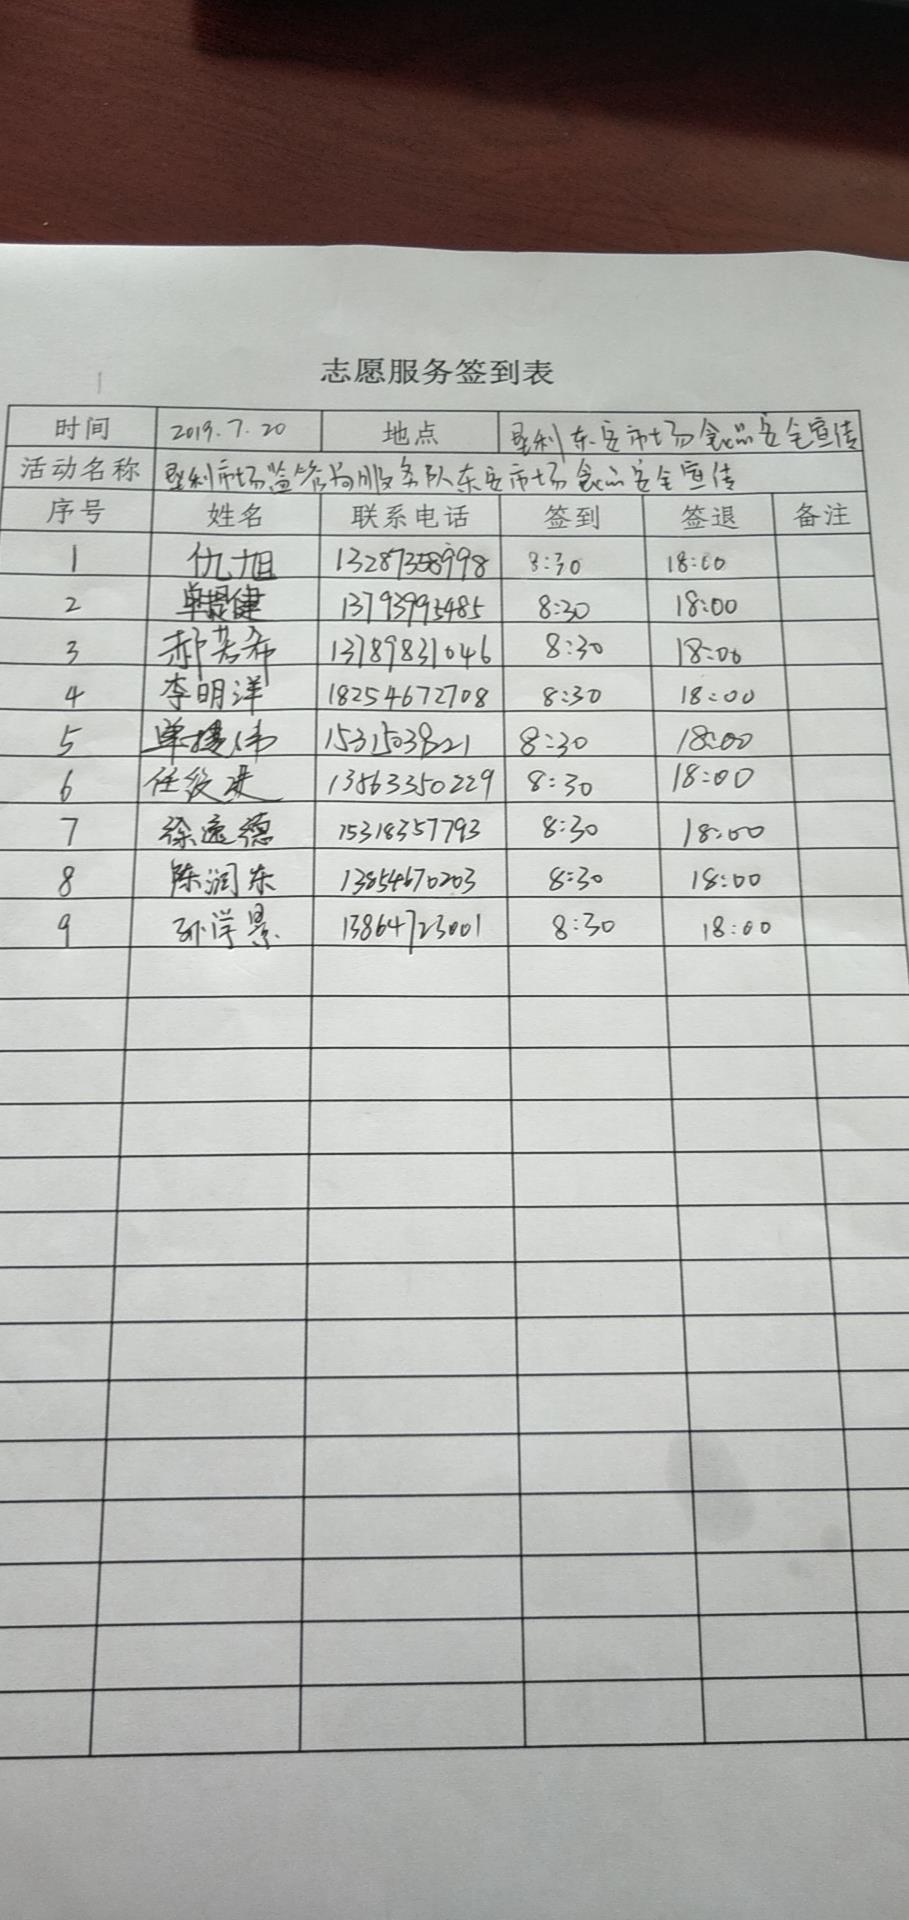 志愿服务签到表
时间 2019.7.20 地点 垦利东安市场食品安全宣传
活动名称 垦利市场监管局服务队东安市场食品安全宣传
序号 姓名 联系电话 签到 签退 备注
1 仇旭 13287358998 8:30 18:00
2 单提健 13793993485 8:30 18:00
3 郝若希 13789831046 8:30 18:00
4 李明洋 18254672708 8:30 18:00
5 单 伟 8:30 18:00
6 13563350229 8:30 18:00
7 徐 德 15318357793 8:30 18:00
8 陈润东 13854670203 8:30 18:00
9 孙学景 13864723001 8:30 18:00